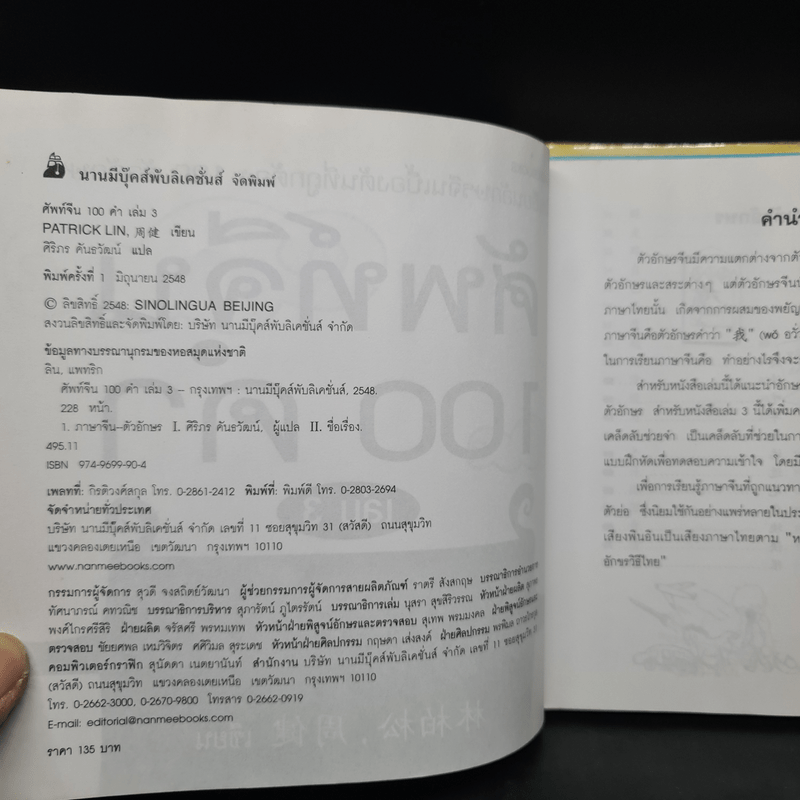 นานมีบุ๊คส์พับลิเคชั่นส์ จัดพิมพ์
ศัพท์จีน 100 คำ เล่ม 3
PATRICK LIN, 周健 เขียน
ศิริภร คันธวัฒน์ แปล
พิมพ์ครั้งที่ 1 มิถุนายน 2548
© ลิขสิทธิ์ 2548: SINOLINGUA BEIJING
สงวนลิขสิทธิ์และจัดพิมพ์โดย: บริษัท นานมีบุ๊คส์พับลิเคชั่นส์ จำกัด
ข้อมูลทางบรรณานุกรมของหอสมุดแห่งชาติ
ลิน, แพทริก
ศัพท์จีน 100 คำ เล่ม 3 – กรุงเทพฯ : นานมีบุ๊คส์พับลิเคชั่นส์, 2548.
228 หน้า.
1. ภาษาจีน–ตัวอักษร I. ศิริภร คันธวัฒน์, ผู้แปล II. ชื่อเรื่อง.
495.11
ISBN 974-9699-90-4
เพลทที่: กิรติวงศ์สกุล โทร. 0-2861-2412 พิมพ์ที่: พิมพ์ดี โทร. 0-2803-2694
จัดจำหน่ายทั่วประเทศ
บริษัท นานมีบุ๊คส์ จำกัด เลขที่ 11 ซอยสุขุมวิท 31 (สวัสดี) ถนนสุขุมวิท
แขวงคลองเตยเหนือ เขตวัฒนา กรุงเทพฯ 10110
www.nanmeebooks.com
กรรมการผู้จัดการ สุวดี จงสถิตย์วัฒนา ผู้ช่วยกรรมการผู้จัดการสายผลิตภัณฑ์ ราตรี สังสกฤษ บรรณาธิการอำนวยการ
ทัศนาภรณ์ คทวณิช บรรณาธิการบริหาร สุภารัตน์ ภูไตรรัตน์ บรรณาธิการเล่ม นุสรา สุขสิริวรรณ หัวหน้าฝ่ายผลิต
พงศ์ไกรศรีสิริ ฝ่ายผลิต จรัสศรี พรหมเทพ หัวหน้าฝ่ายพิสูจน์อักษรและตรวจสอบ สุเทพ พรมมงคล ฝ่ายพิสูจน์อักษรและ
ตรวจสอบ ชัยยศพล เหมวิจิตร ศศิวิมล สุระเดช หัวหน้าฝ่ายศิลปกรรม กฤษดา เส่งสงค์ ฝ่ายศิลปกรรม
คอมพิวเตอร์กราฟิก สุนัดดา เนตยานันท์ สำนักงาน บริษัท นานมีบุ๊คส์พับลิเคชั่นส์ จำกัด เลขที่ 11 ซอยสุขุมวิท 31
(สวัสดี) ถนนสุขุมวิท แขวงคลองเตยเหนือ เขตวัฒนา กรุงเทพฯ 10110
โทร. 0-2662-3000, 0-2670-9800 โทรสาร 0-2662-0919
E-mail: editorial@nanmeebooks.com
ราคา 135 บาท
คำนำ
ตัวอักษรจีนมีความแตกต่างจากตัว
ตัวอักษรและสระต่างๆ แต่ตัวอักษรจีน
ภาษาไทยนั้น เกิดจากการผสมของพยัญ
ภาษาจีนคือตัวอักษรคำว่า "我" (wǒ อวั่
ในการเรียนภาษาจีนคือ ทำอย่างไรจึงจะ
สำหรับหนังสือเล่มนี้ได้แนะนำอักษ
ตัวอักษร สำหรับหนังสือเล่ม 3 นี้ได้เพิ่ม
เคล็ดลับช่วยจำ เป็นเคล็ดลับที่ช่วยในกา
แบบฝึกหัดเพื่อทดสอบความเข้าใจ โดยมี
เพื่อการเรียนรู้ภาษาจีนที่ถูกแนวทา
ตัวย่อ ซึ่งนิยมใช้กันอย่างแพร่หลายในประ
เสียงพินอินเป็นเสียงภาษาไทยตาม "ห
อักขรวิธีไทย"